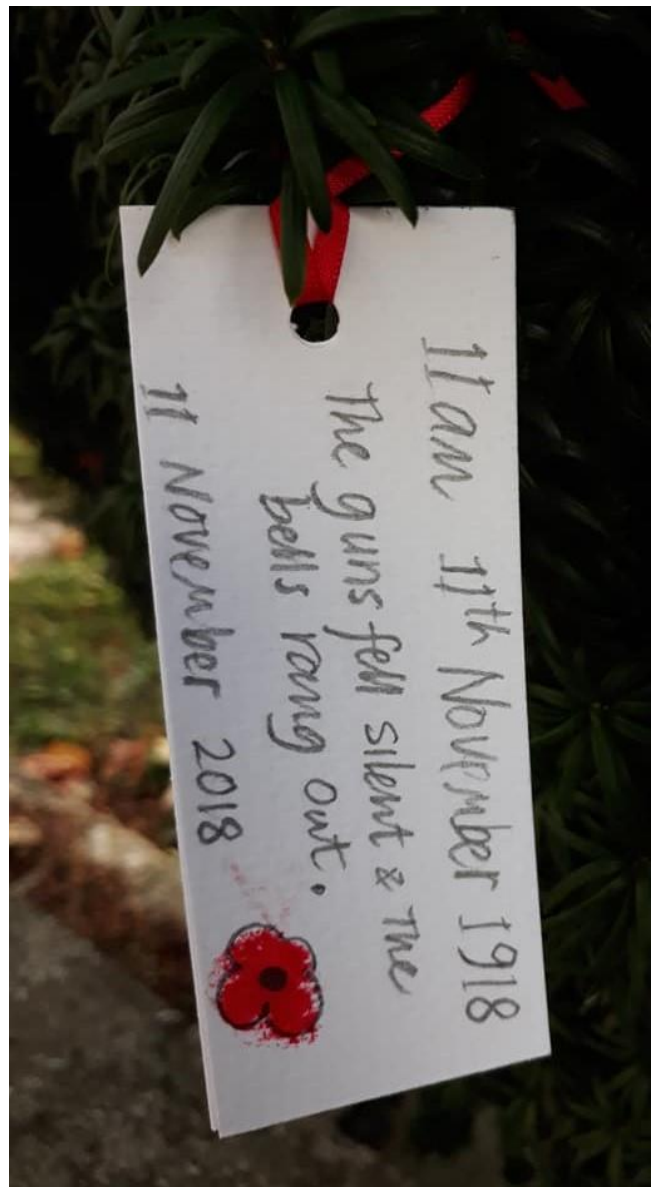 11am 11th November 1918
The guns fell silent & The
bells rang out.
11 November 2018